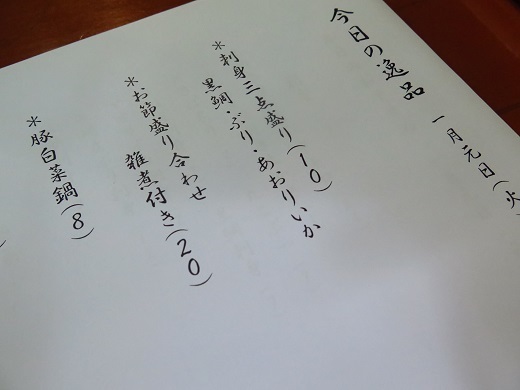 今日の逸品
一月元日(火
＊刺身三点盛り(10)
黒鯛・ぶり・あおりいか
＊お節盛り合わせ
雑煮付き(20)
＊豚白菜鍋(8)
)